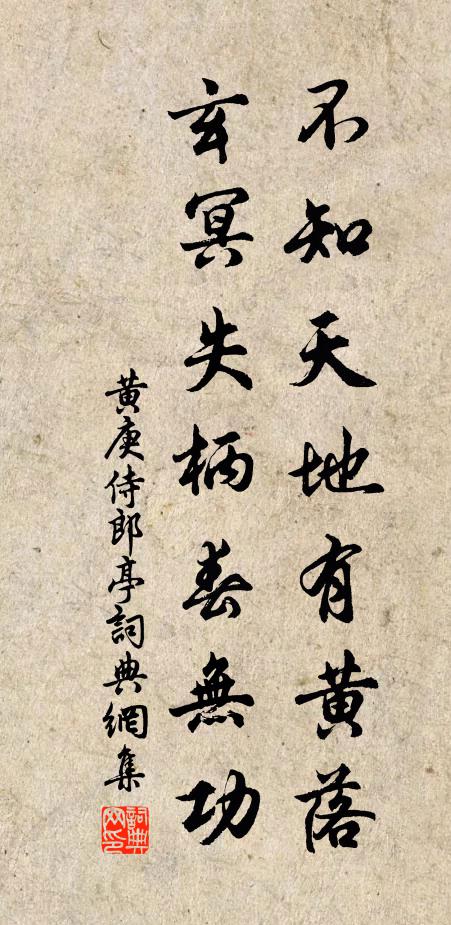 不知天地有黄落
玄冥失柄春無功
黄庚侍郎亭詞典網集
詞典網印